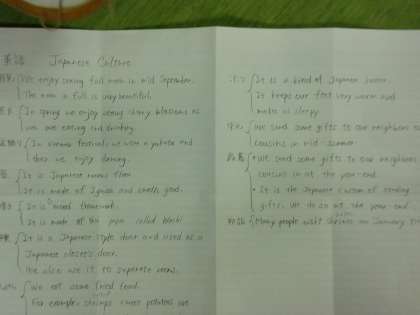 英語 Japanese Culture
We enjoy seeing full moon in mid September.
The moon is full is very beautiful.
In spring we enjoy seeing cherry blossoms as
we are eating and drinking.
In various festivals we wear a yukata and
then we enjoy dancing.
It is a Japanese room floor.
It is made of Igusa and smells good.
It is a wood framework.
It is made of the paper called Washi.
It is a Japanese style door and used as a
Japanese closet's door.
We also use it to separate rooms.
We eat some fried food.
For example, shrimps, sweet potatoes are
It is a kind of Japanese heater.
It keeps our feet very warm and
makes us sleepy.
We send some gifts to our neighbors or
cousins in mid-summer.
We send some gifts to our neighbors
cousins in at the year-end.
It is the Japanese custom of sending
gifts. We do so at the year-end.
Many people visit shrines on January 1st